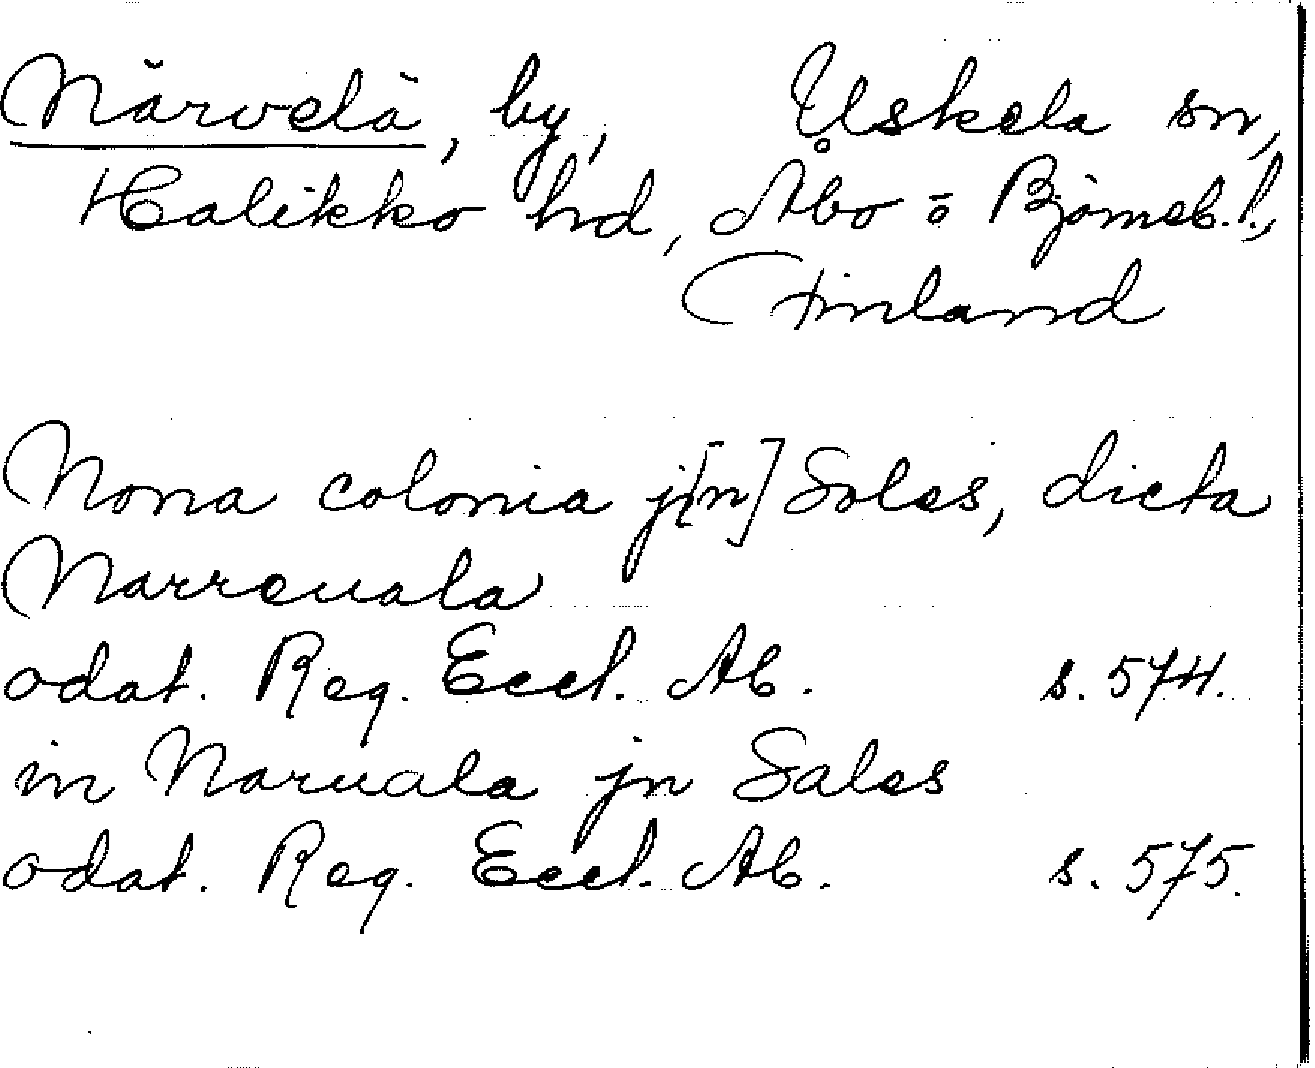 Närvelä, by, Uskela sn,
Halikko hd, Åbo o Björneb. l.,
Finland
Nona colonia j[n] Soles, dicta
Narreuala
odat. Reg. Eccl. Ab. s. 574.
in Naruala jn Sales
odat. Reg. Eccl. Ab. s. 575.